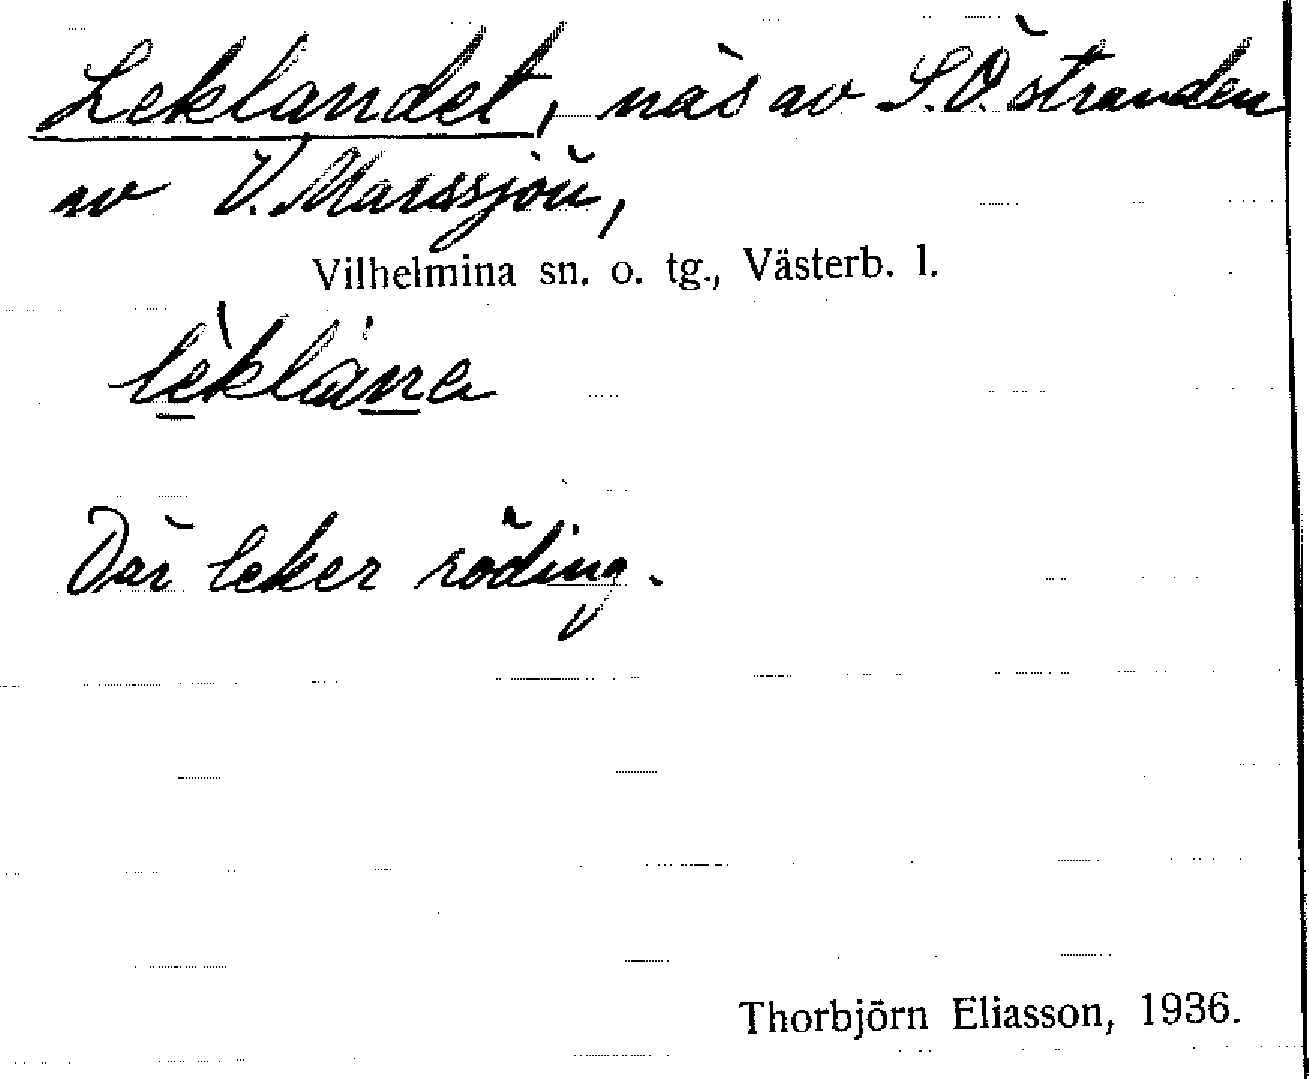 Leklandet, näs av S.Ö. stranden
av V. Marssjön,
Vilhelmina sn. o. tg., Västerb. l.
Där leker röding.
Thorbjörn Eliasson, 1936.